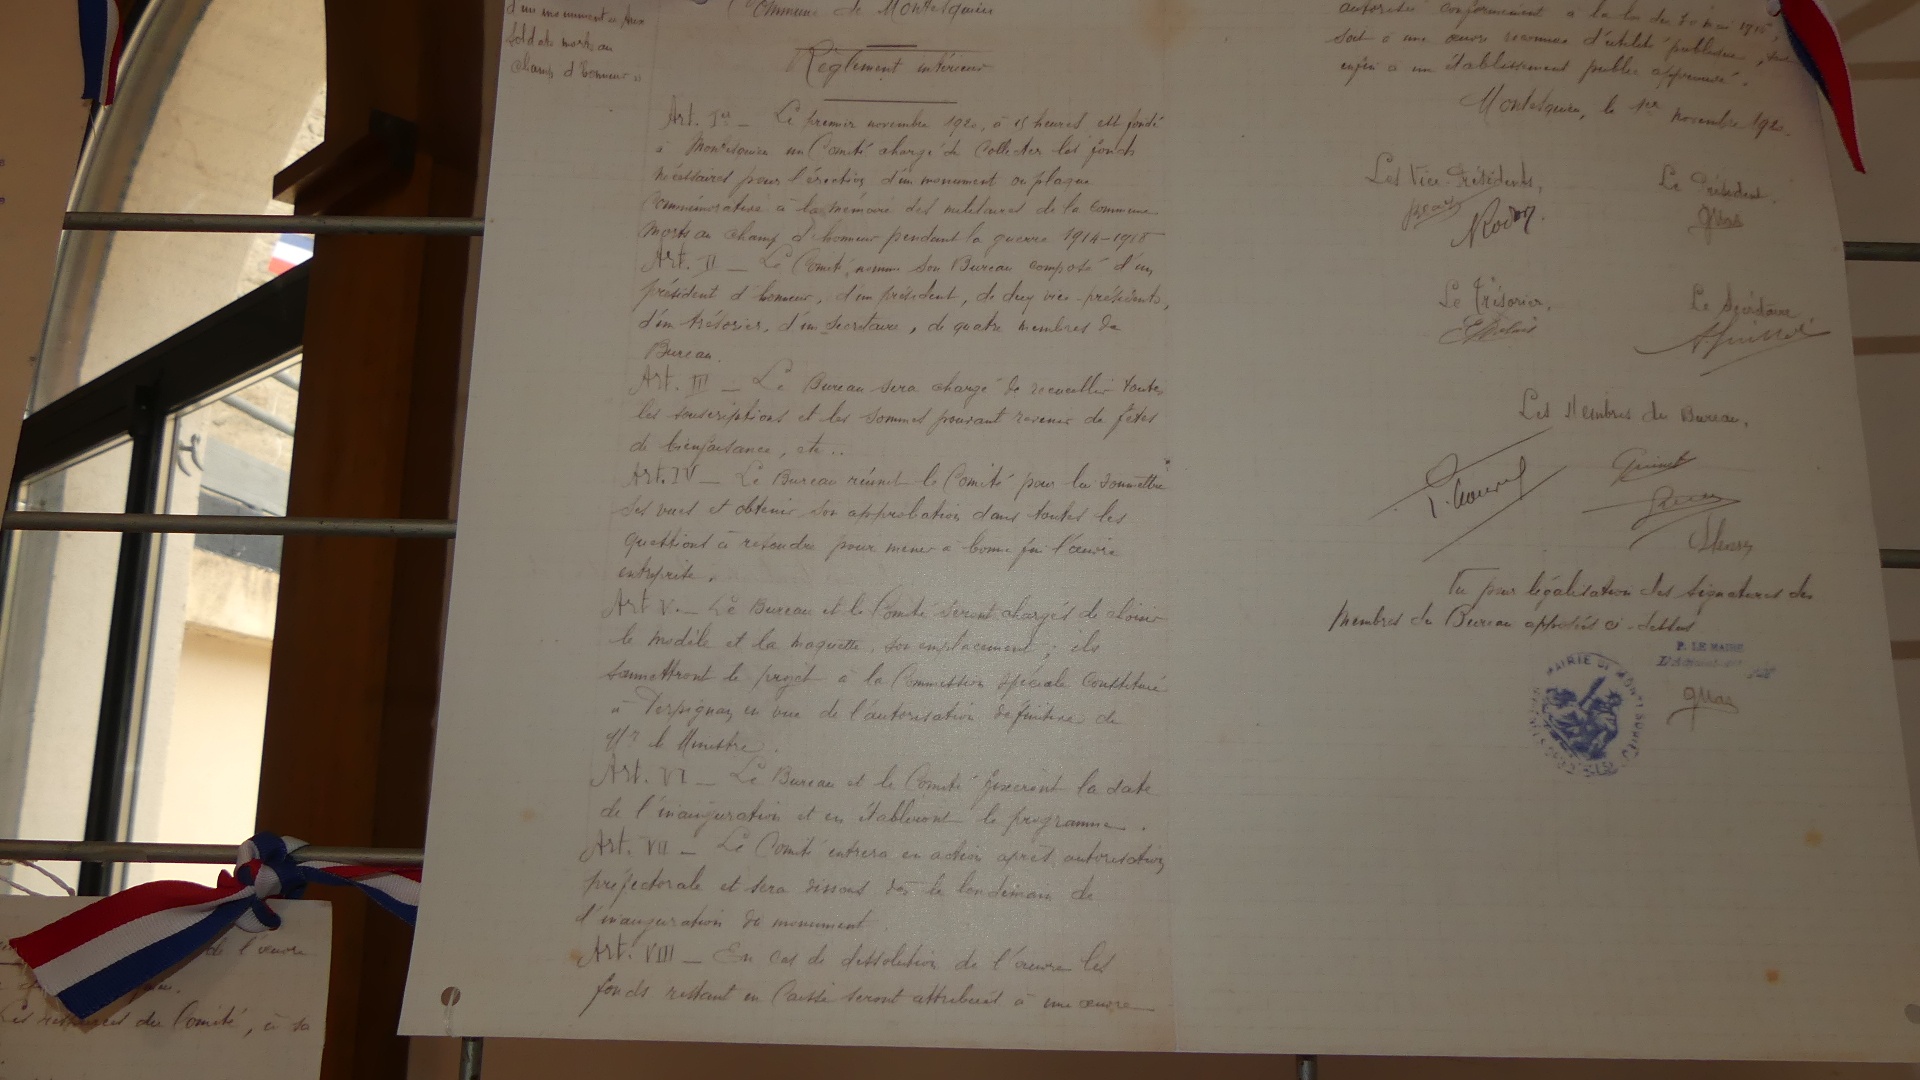 d'un monument aux
soldats morts au
champ d'honneur »
Commune de Montesquieu
Règlement intérieur
Art. Ier — Le premier novembre 1920, à 15 heures est fondé
à Montesquieu un Comité chargé de collecter les fonds
nécessaires pour l'érection d'un monument ou plaque
commémorative à la mémoire des militaires de la commune
morts au champ d'honneur pendant la guerre 1914-1918
Art. II — Le Comité nomme son Bureau composé d'un
président d'honneur, d'un président, de deux vice-présidents,
d'un trésorier, d'un secrétaire, de quatre membres du
Bureau.
Art. III — Le Bureau sera chargé de recueillir toutes
les souscriptions et les sommes pouvant revenir de fêtes
de bienfaisance, etc..
Art. IV — Le Bureau réunit le Comité pour lui soumettre
ses vues et obtenir son approbation dans toutes les
questions à résoudre pour mener à bonne fin l'œuvre
entreprise.
Art V. — Le Bureau et le Comité seront chargés de choisir
le modèle et la maquette, son emplacement ; ils
soumettront le projet à la Commission spéciale constituée
à Perpignan en vue de l'autorisation définitive de
Mr le Ministre.
Art. VI — Le Bureau et le Comité fixeront la date
de l'inauguration et en établiront le programme.
Art. VII — Le Comité entrera en action après autorisation
préfectorale et sera dissous dès le lendemain de
l'inauguration du monument
Art. VIII — En cas de dissolution de l'œuvre les
fonds restant en caisse seront attribués à une œuvre
autorisée conformément à la loi du 30 mai 1916,
soit à une œuvre reconnue d'utilité publique, soit
enfin à un établissement public approuvé.
Montesquieu, le 1er novembre 1920.
Les Vice-Présidents,
Le Président.
Gras
Le Trésorier,
Le Secrétaire
Les Membres du Bureau,
Vu pour légalisation des signatures des
membres du Bureau apposées ci-dessus
P. LE MAIRE
L'Adjoint
MAIRIE DE MONTESQUIEU
Gras
de l'œuvre
Les ressources du Comité, à sa